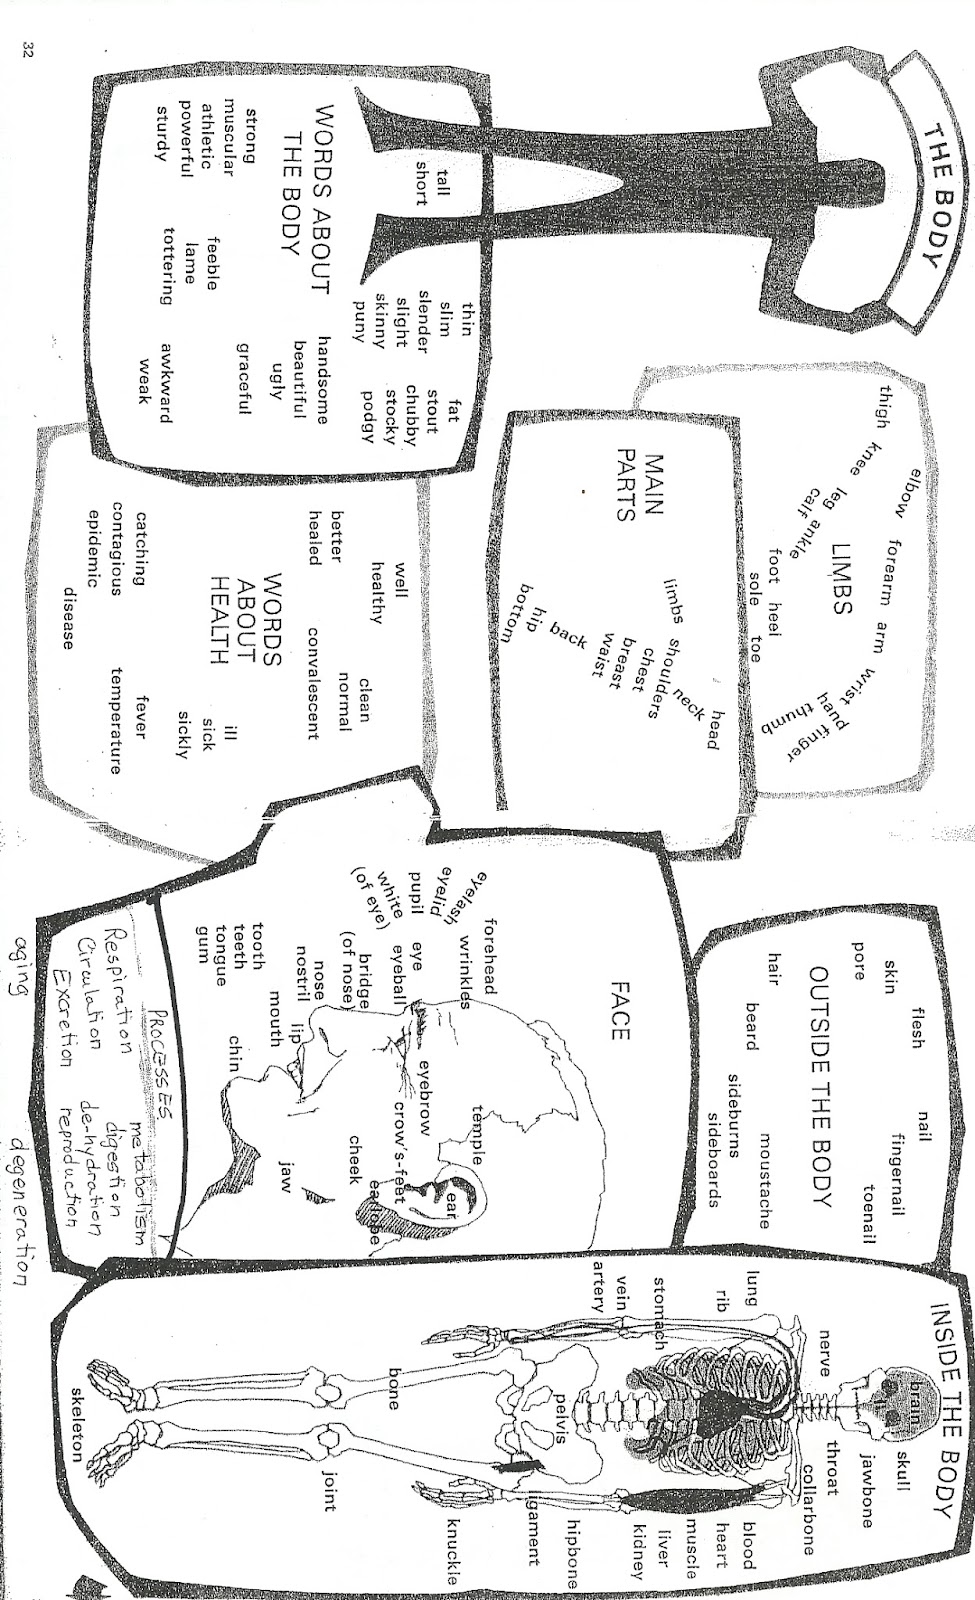 THE BODY
tall
short
thin
slim
slender
slight
skinny
puny
fat
stout
chubby
stocky
podgy
WORDS ABOUT
THE BODY
handsome
beautiful
ugly
graceful
awkward
weak
strong
muscular
athletic
powerful
sturdy
feeble
lame
tottering
32
LIMBS
thigh
knee
leg
calf
ankle
elbow
forearm
arm
wrist
hand
finger
thumb
foot
heel
sole
toe
MAIN
PARTS
head
neck
limbs
shoulders
chest
breast
waist
back
hip
bottom
WORDS
ABOUT
HEALTH
well
healthy
better
healed
clean
normal
convalescent
ill
sick
sickly
catching
contagious
epidemic
fever
temperature
disease
OUTSIDE THE BODY
skin
flesh
pore
nail
fingernail
toenail
hair
beard
moustache
sideburns
sideboards
FACE
forehead
wrinkles
eyelash
eyelid
pupil
white
(of eye)
eye
eyeball
bridge
(of nose)
nose
nostril
lip
mouth
tooth
teeth
tongue
gum
chin
temple
eyebrow
crow's-feet
ear
earlobe
cheek
jaw
PROCESSES
Respiration
Circulation
Excretion
metabolism
digestion
de-hydration
reproduction
aging
degeneration
INSIDE THE BODY
brain
skull
jawbone
nerve
throat
collarbone
lung
rib
stomach
vein
artery
blood
heart
muscle
liver
kidney
pelvis
hipbone
ligament
knuckle
bone
joint
skeleton